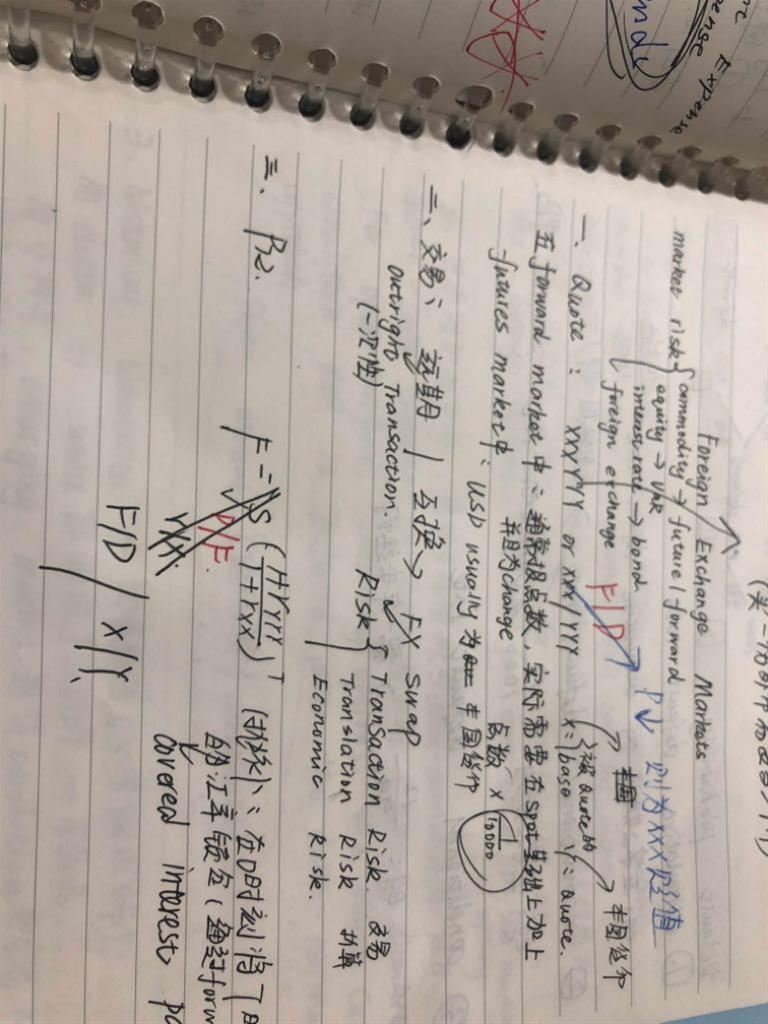 Expense
Foreign Exchange Markets
market risk
commodity → future / forward
equity → VaR
interest rate → bond
foreign exchange
F/D
P↓ 则为XXX贬值
本国
一、Quote: XXXYYY or XXX/YYY
X=base Y: Quote.
被Quote的
本国货币
在forward market中: 通常报点数, 实际需要在spot基础上加上
点数 × 1/10000
futures market中: USD usually为 本国货币
并且为change
二、交易: 远期 / 互换 → FX swap
outright Transaction.
(一次性)
Risk
Transaction Risk. 交易
Translation Risk 折算
Economic Risk.
三、
F = S (1+rYYY / 1+rXXX)^T
D/F.
在0时刻将T
的汇率锁定(通过forw
covered interest pa
F/D / X/Y.